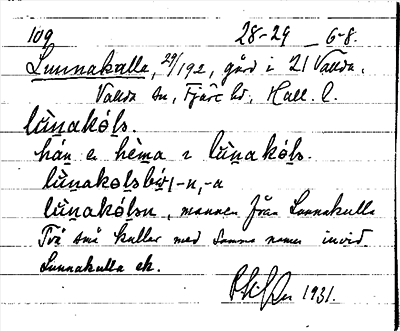 109 28-29 6-8.
Lunnakalla, 29/192, gård i 21 Vallda.
Vallda sn, Fjäre hd, Hall. l.
lùnakóls.
hán e hèma i lùnakóls.
lùnakolsbór, -n, -a
lùnakólsn, mannen från Lunnakulla
Två små kullar med samma namn invid
Lunnakulla ek.
1931.